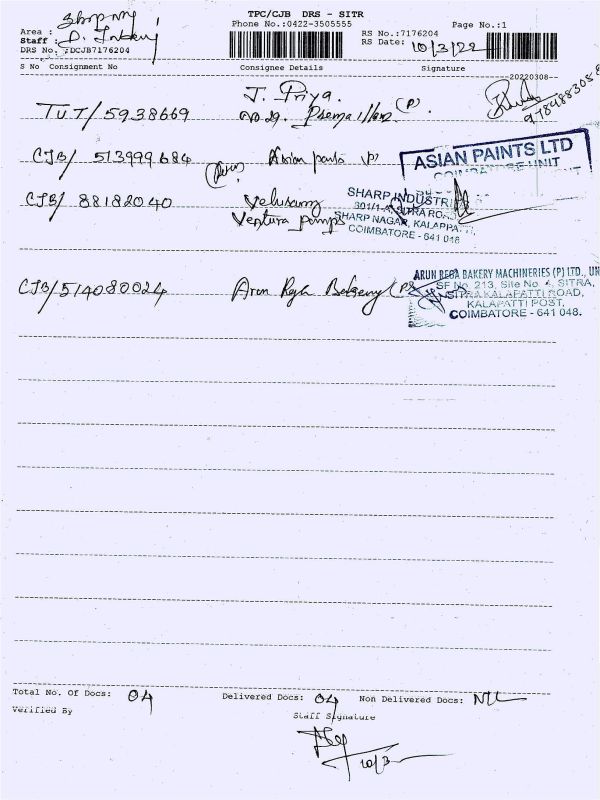 TPC/CJB DRS - SITR
Phone No.:0422-3505555
Page No.:1
Area :
Staff :
DRS No. :DCJB7176204
RS No.:7176204
RS Date: 10/3/22
S No Consignment No Consignee Details Signature
20220308
TUT/5938669 J. Priya.
No 29. (P).
CJB/ 513999684 Asian paints (P)
ASIAN PAINTS LTD
COIMBATORE UNIT
CJB/ 88182040 Velusamy
Ventura pumps
SHARP INDUSTRI
301/1-A, SITRA ROAD
SHARP NAGAR, KALAPPATTI,
COIMBATORE - 641 048
CJB/514080024 Arun Rega Bakery (P)
ARUN REGA BAKERY MACHINERIES (P) LTD., UN
SF No. 213, Site No. 4, SITRA,
SITRA KALAPATTI ROAD,
KALAPATTI POST,
COIMBATORE - 641 048.
Total No. Of Docs: 04 Delivered Docs: 04 Non Delivered Docs: NIL
Verified By Staff Signature
10/3